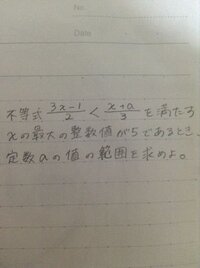 No
Date
不等式 (3x-1)/2 < (x+a)/3 を満たす
xの最大の整数値が5であるとき、
定数aの値の範囲を求めよ。